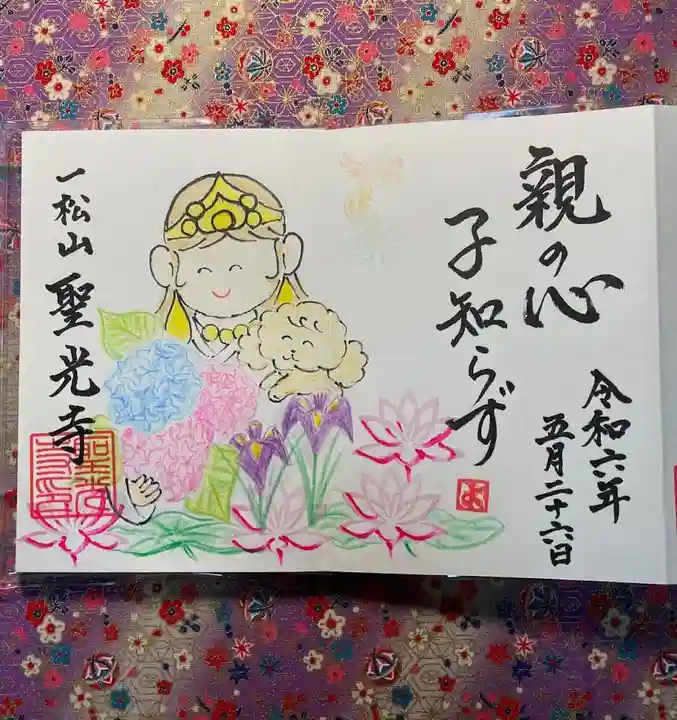 親の心
子知らず
令和六年
五月二十六日
一松山 聖光寺
よ